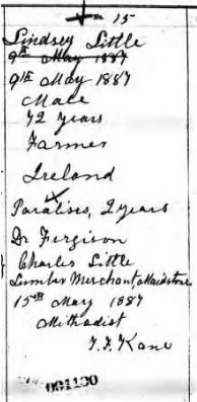 15
Lindsey Little
9th May 1887
9th May 1887
Male
72 years
Farmer
Ireland
Paralises, 2 years
Dr Fergison
Charles Little
Lumber Merchant, Maidstone
15th May 1887
Methodist
F. F. Kane
001100